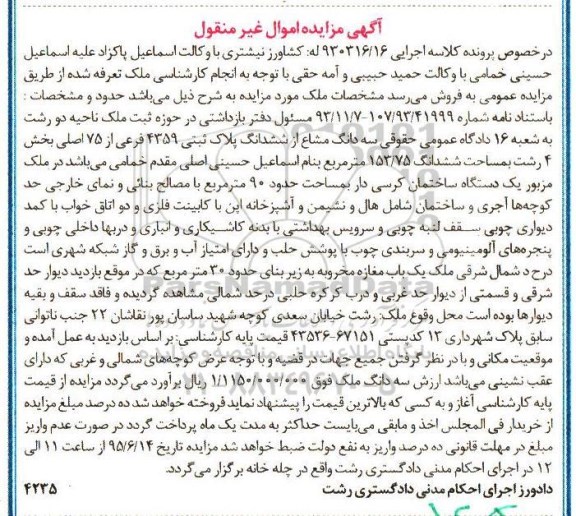 آگهی مزایده اموال غیر منقول
درخصوص پرونده کلاسه اجرایی ۹۳۰۳۱۶/۱۶ له: کشاورز نیشتری با وکالت اسماعیل پاکزاد علیه اسماعیل
حسینی خمامی با وکالت حمید حبیبی و آمه حقی با توجه به انجام کارشناسی ملک تعرفه شده از طریق
مزایده عمومی به فروش می‌رسد مشخصات ملک مورد مزایده به شرح ذیل می‌باشد حدود و مشخصات :
باستناد نامه شماره ۱۰۷/۹۳/۴۱۹۹۹-۹۳/۱۱/۷ مسئول دفتر بازداشتی در حوزه ثبت ملک ناحیه دو رشت
به شعبه ۱۶ دادگاه عمومی حقوقی سه دانگ مشاع از ششدانگ پلاک ثبتی ۴۳۵۹ فرعی از ۷۵ اصلی بخش
۴ رشت بمساحت ششدانگ ۱۵۳/۷۵ مترمربع بنام اسماعیل حسینی اصلی مقدم خمامی می‌باشد در ملک
مزبور یک دستگاه ساختمان کرسی دار بمساحت حدود ۹۰ مترمربع با مصالح بنائی و نمای خارجی حد
کوچه‌ها آجری و ساختمان شامل هال و نشیمن و آشپزخانه اپن با کابینت فلزی و دو اتاق خواب با کمد
دیواری چوبی سقف لنبه چوبی و سرویس بهداشتی با بدنه کاشیکاری و انباری و دربها داخلی چوبی و
پنجره‌های آلومینیومی و سربندی چوب با پوشش حلب و دارای امتیاز آب و برق و گاز شبکه شهری است
درح د شمال شرقی ملک یک باب مغازه مخروبه به زیر بنای حدود ۳۰ متر مربع که در موقع بازدید دیوار حد
شرقی و قسمتی از دیوار حد غربی و درب کرکره حلبی درحد شمالی مشاهده گردیده و فاقد سقف و بقیه
دیوارها بوده است محل وقوع ملک: رشت خیابان سعدی کوچه شهید ساسان پور نقاشان ۲۲ جنب ناتوانی
سابق پلاک شهرداری ۱۳ کدپستی ۶۷۱۵۱-۴۳۵۳۶ قیمت پایه کارشناسی: بر اساس بازدید به عمل آمده و
موقعیت مکانی و با در نظر گرفتن جمیع جهات در قضیه و با توجه عرض کوچه‌های شمالی و غربی که دارای
عقب نشینی می‌باشد ارزش سه دانگ ملک فوق ۱/۱۱۵۰/۰۰۰/۰۰۰ ریال برآورد می‌گردد مزایده از قیمت
پایه کارشناسی آغاز و به کسی که بالاترین قیمت را پیشنهاد نماید فروخته خواهد شد ده درصد مبلغ مزایده
از خریدار فی المجلس اخذ و مابقی می‌بایست حداکثر به مدت یک ماه پرداخت گردد در صورت عدم واریز
مبلغ در مهلت قانونی ده درصد واریز به نفع دولت ضبط خواهد شد مزایده تاریخ ۹۵/۶/۱۴ از ساعت ۱۱ الی
۱۲ در اجرای احکام مدنی دادگستری رشت واقع در چله خانه برگزار می‌گردد.
دادورز اجرای احکام مدنی دادگستری رشت ۴۲۳۵